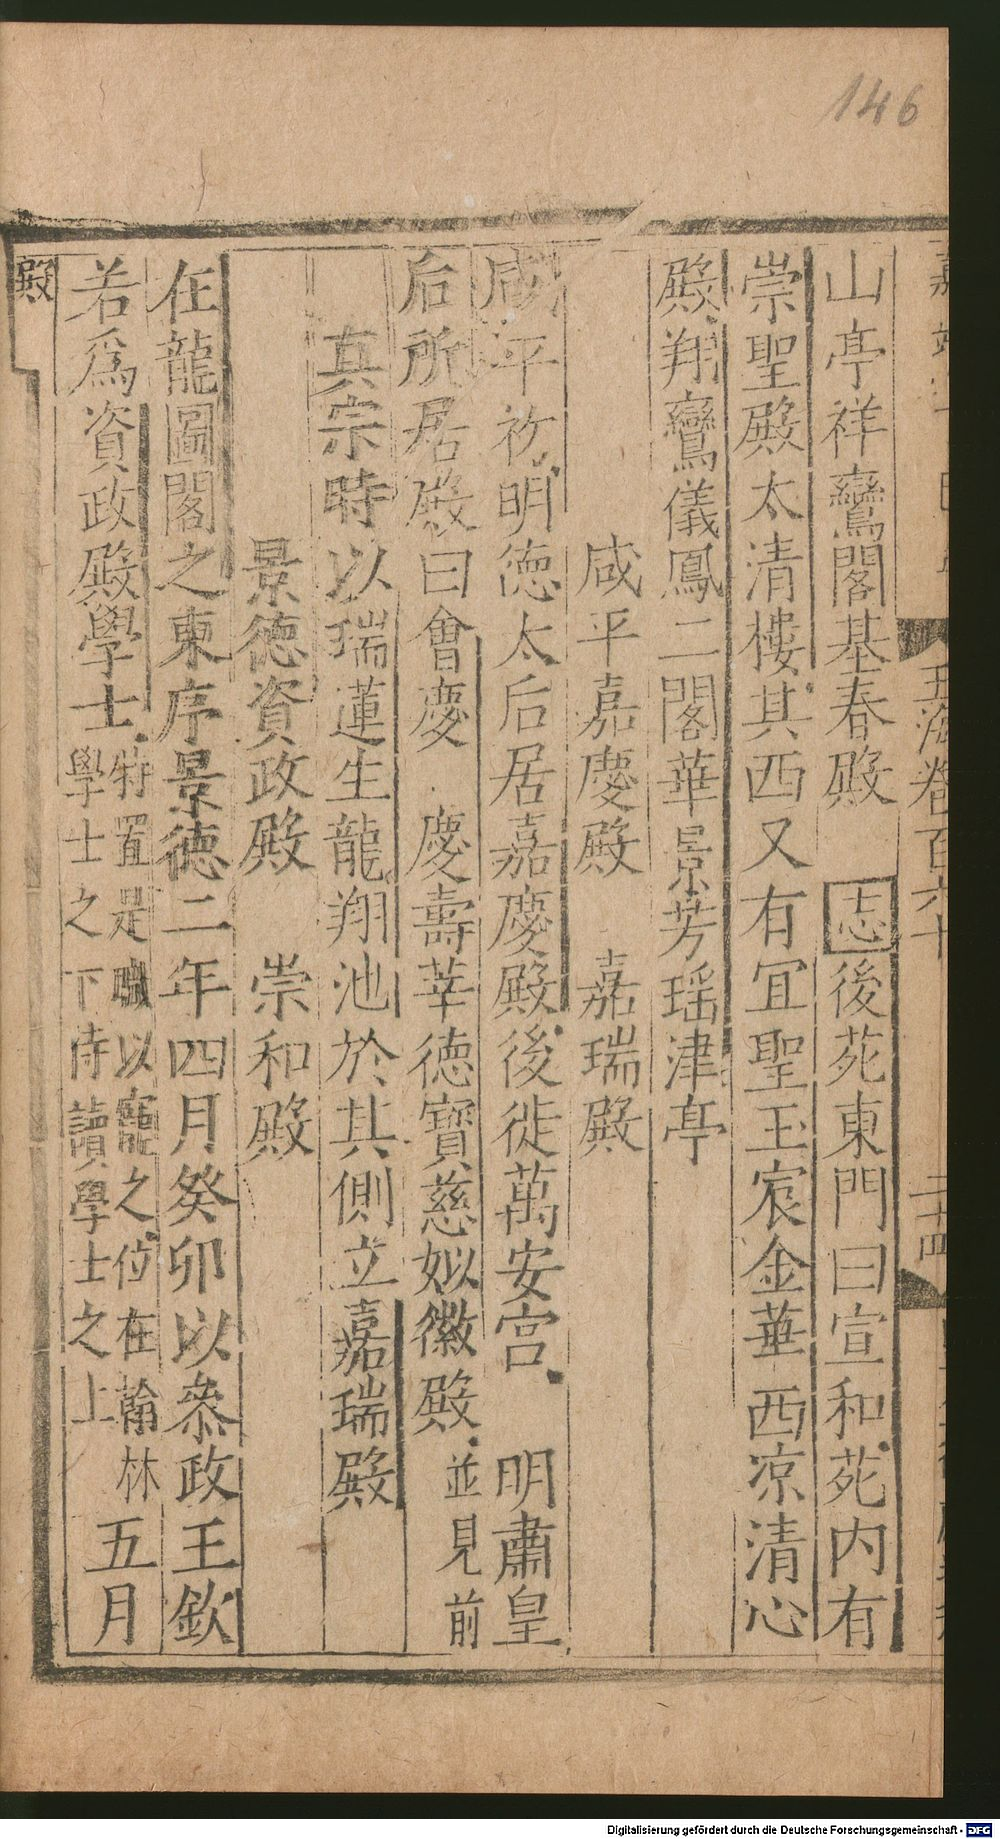 146
玉海卷百六十
二十四
山亭祥鸞閣基春殿 志後苑東門曰宣和苑内有
崇聖殿太清樓其西又有冝聖玉宸金華西凉清心
殿翔鸞儀鳳二閣華景芳瑶津亭
咸平嘉慶殿 嘉瑞殿
咸平初明徳太后居嘉慶殿後徙萬安宫 明肅皇
后所居殿曰會慶 慶壽莘徳寳慈姒徽殿並見前
真宗時以瑞蓮生龍翔池於其側立嘉瑞殿
景徳資政殿 崇和殿
在龍圖閣之東序景徳二年四月癸卯以叅政王欽
若爲資政殿學士特置是職以寵之位在翰林學士之下侍讀學士之上五月
殿
Digitalisierung gefördert durch die Deutsche Forschungsgemeinschaft - DFG